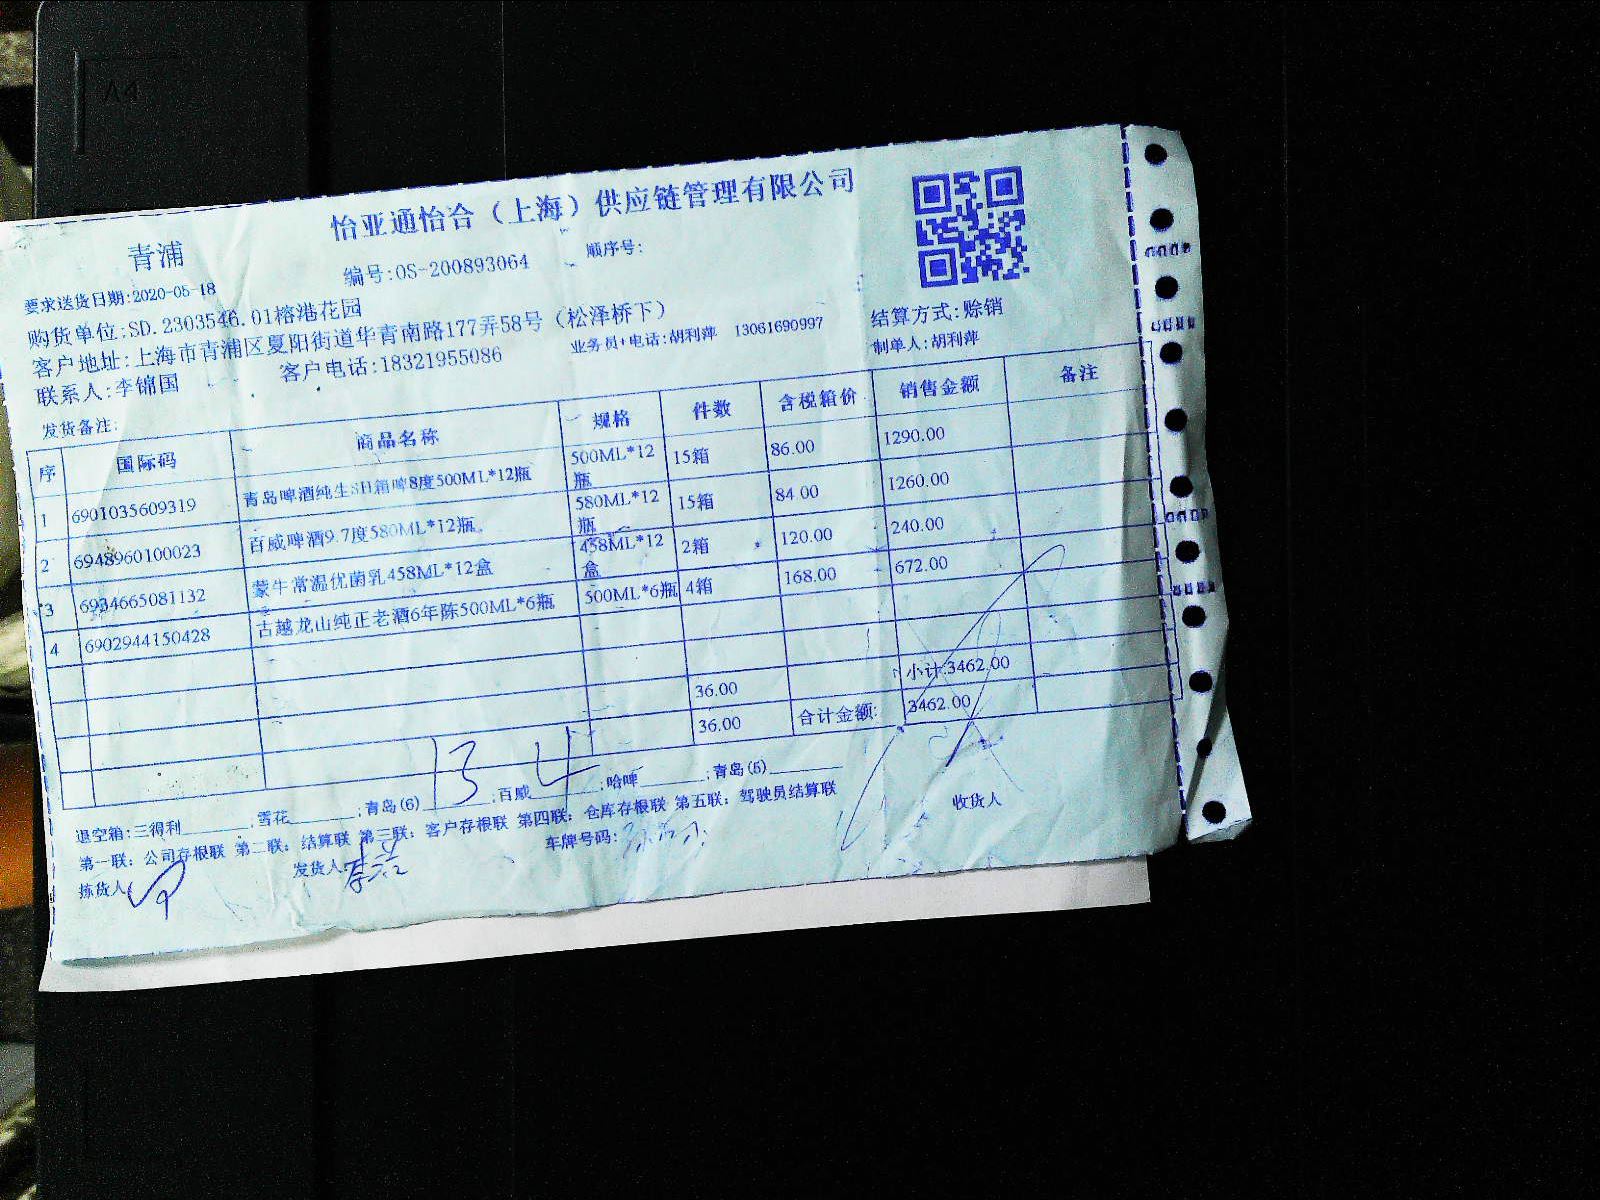 A4
怡亚通怡合（上海）供应链管理有限公司
青浦
编号:OS-200893064
顺序号:
要求送货日期:2020-05-18
购货单位:SD.2303546.01榕港花园
结算方式:赊销
客户地址:上海市青浦区夏阳街道华青南路177弄58号（松泽桥下）
业务员+电话:胡利萍 13061690997
制单人:胡利萍
联系人:李锦国
客户电话:18321955086
发货备注:
序 国际码 商品名称 规格 件数 含税箱价 销售金额 备注
1 6901035609319 青岛啤酒纯生SH箱啤8度500ML*12瓶 500ML*12瓶 15箱 86.00 1290.00
2 6948960100023 百威啤酒9.7度580ML*12瓶 580ML*12瓶 15箱 84.00 1260.00
3 6934665081132 蒙牛常温优菌乳458ML*12盒 458ML*12盒 2箱 120.00 240.00
4 6902944150428 古越龙山纯正老酒6年陈500ML*6瓶 500ML*6瓶 4箱 168.00 672.00
36.00 小计:3462.00
36.00 合计金额: 3462.00
退空箱:三得利________;雪花________;青岛(6) 13 ;百威 4 ;哈啤________;青岛(5)________
第一联：公司存根联 第二联：结算联 第三联：客户存根联 第四联：仓库存根联 第五联：驾驶员结算联
拣货人
发货人
车牌号码:
收货人